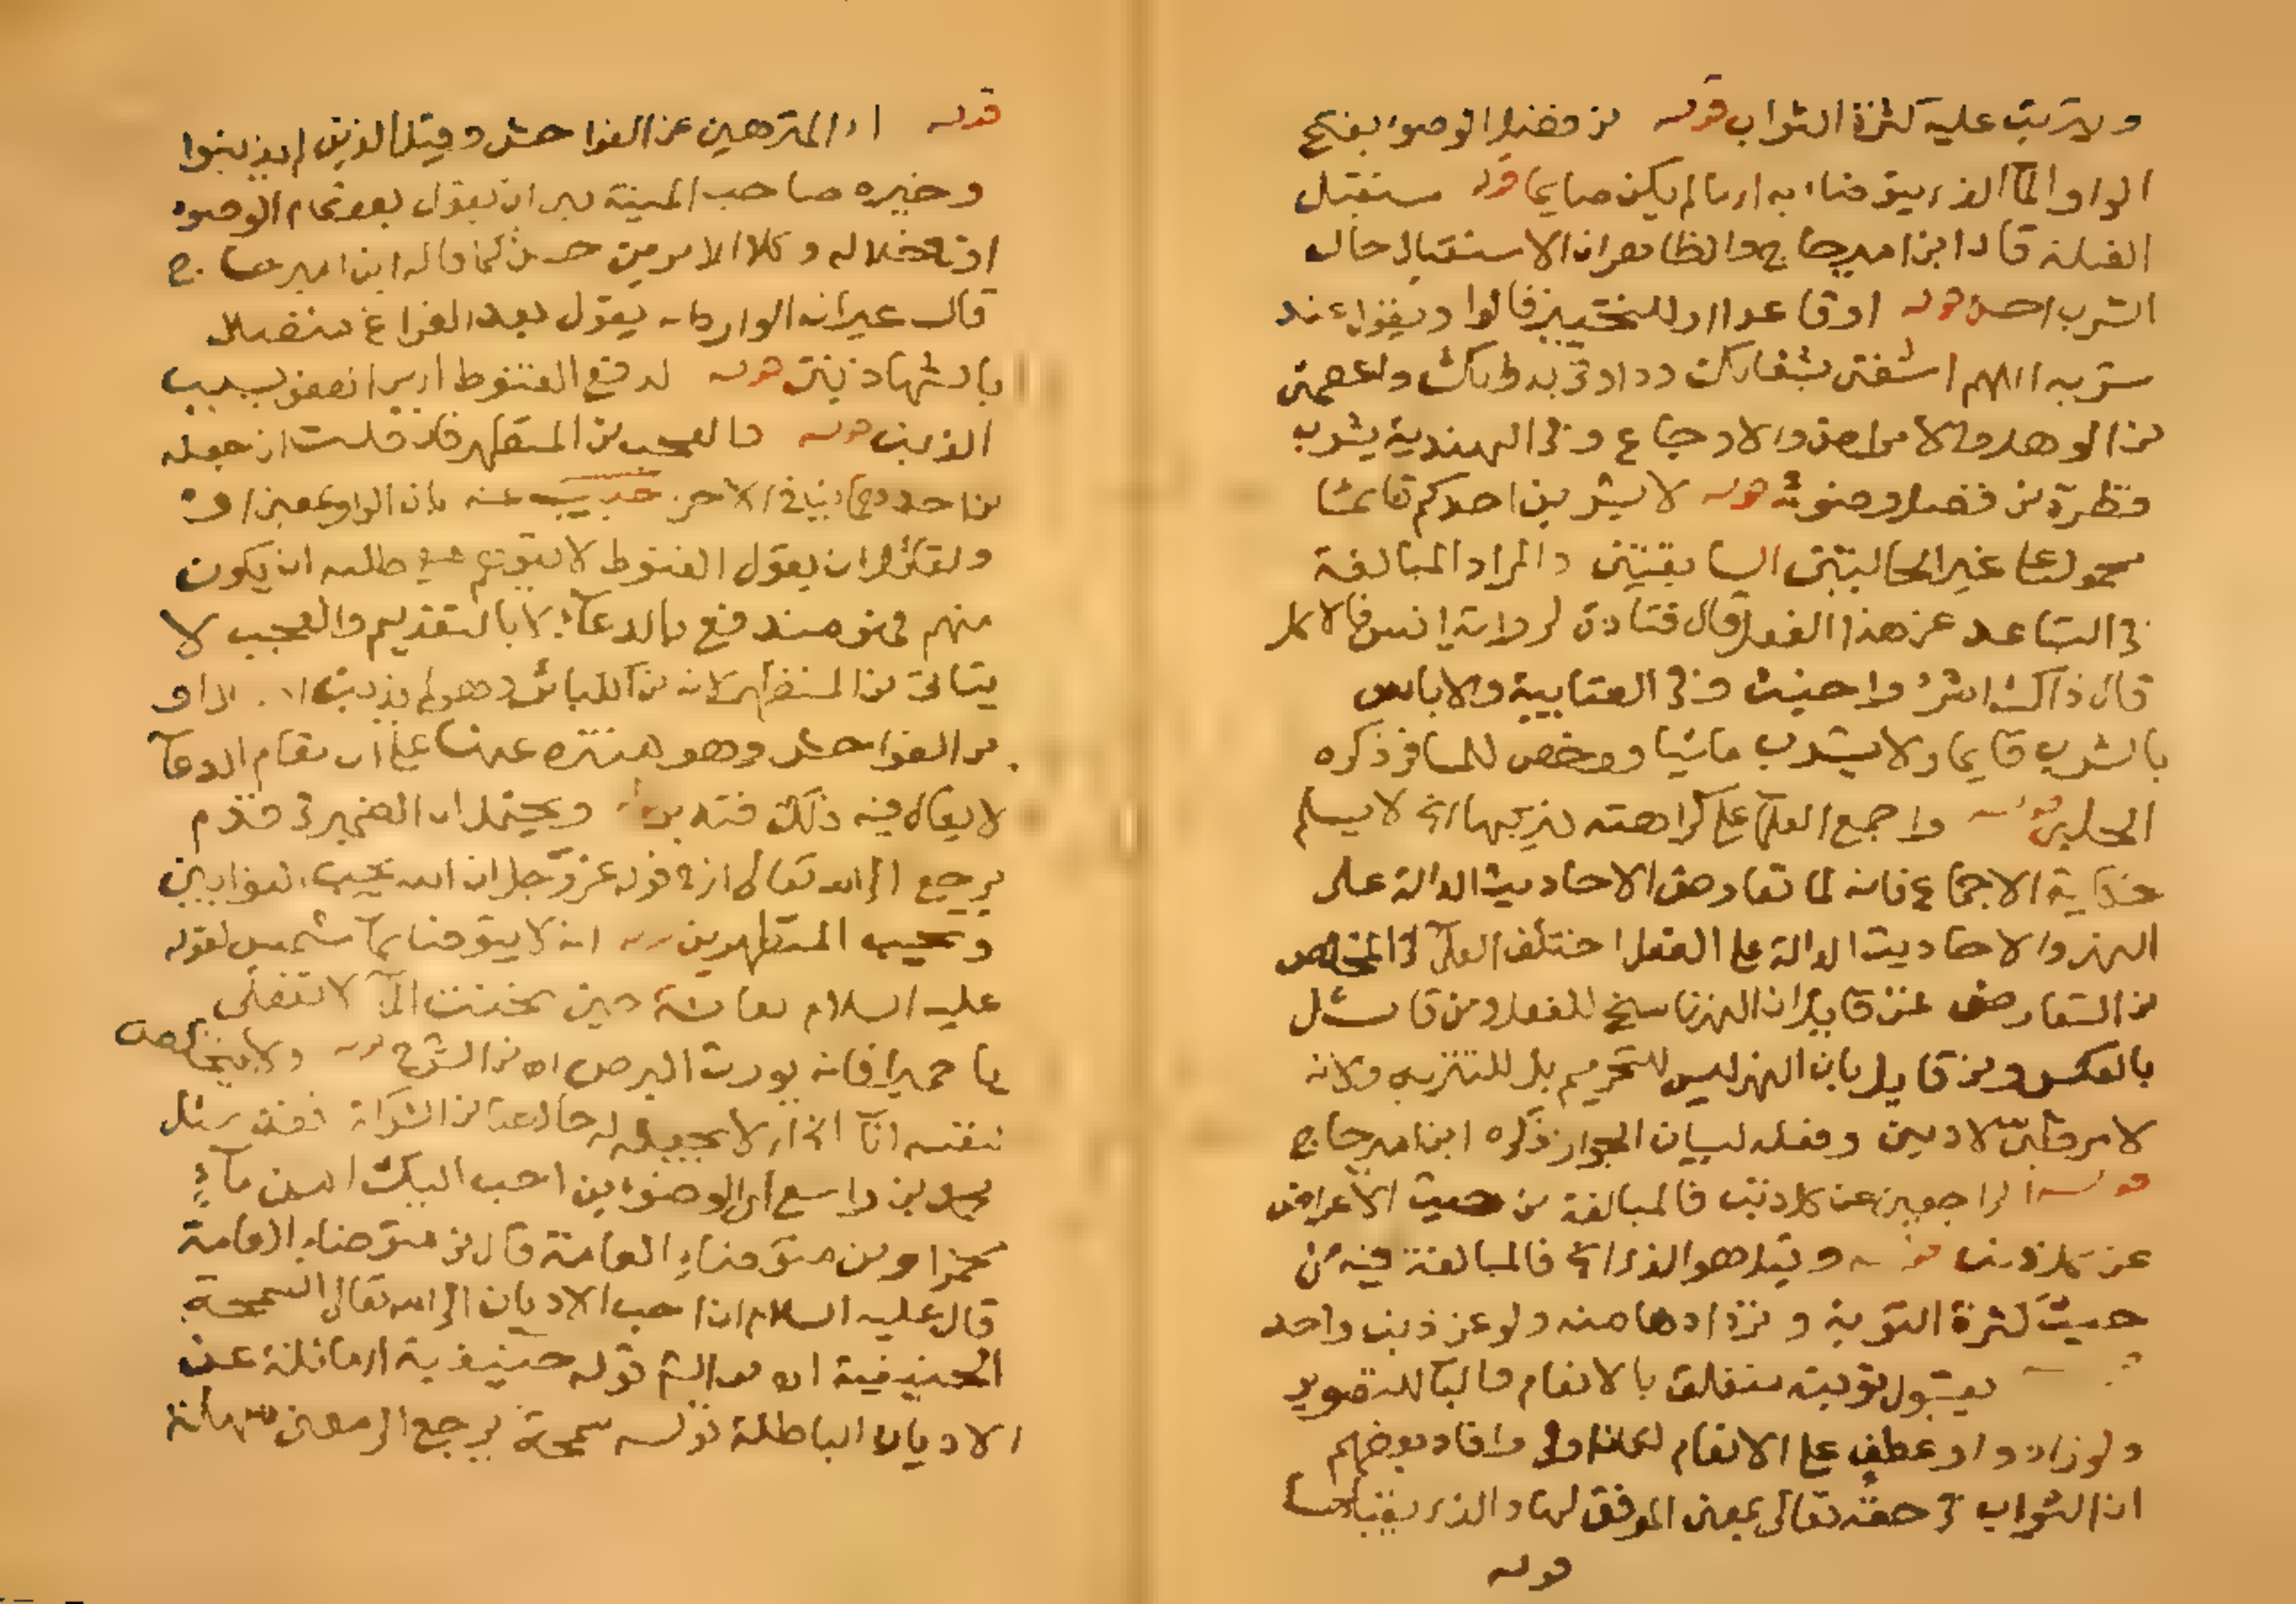 ويترتب عليه كثرة الثواب قوله من فضل الوضوء بفتح
الواو الماء الذي يتوضاء به اي ما لم يكن صايما قوله مستقبل
القبلة قال ابن امير حاج والظاهر ان الاستقبال حال
الشرب احسن قوله او قاعدا او للتخيير قالوا ويقول عند
شربه اللهم اشفني بشفائك وداوني بدوائك واعصمني
من الوهل والامراض والاوجاع وفي الهندية يشرب
قطرة من فضل وضوئه قوله لا يشربن احدكم قائما
محمول على غير الحالتين السابقتين والمراد المبالغة
في التباعد عن هذا الفعل قال قتادة لرواية انس فالاكل
قال ذاك اشر واخبث وفي العتابية ولا باس
بالشرب قايما ولا يشرب ماشيا ورخص للمسافر ذكره
الحلبي قوله واجمع العلماء على كراهته تنزيها الخ لا يسلم
حكاية الاجماع فانه لما تعارض الاحاديث الدالة على
النهي والاحاديث الدالة على الفعل اختلف العلماء في المخلص
من التعارض فمن قايل ان النهي ناسخ للفعل ومن قائل
بالعكس ومن قايل بان النهي ليس للتحريم بل للتنزيه ولانه
لامر طبي لا ديني وفعله لبيان الجواز ذكره ابن امير حاج
قوله الراجعين عن كل ذنب فالمبالغة من حيث الاعراض
عن كل ذنب قوله وقيل هو الذي الخ فالمبالغة فيه من
حيث كثرة التوبة وتردادها منه ولو عن ذنب واحد
بقبول توبته متعلق بالانعام والباء للتصوير
ولو زاد واو عطف على الانعام لكان اولى وافاد بعضهم
ان التواب في حقه تعالى بمعنى الموفق لها والذي يقبلها
قوله
قوله اي المتنزهين عن الفواحش وقيل الذين لم يذنبوا
وخيره صاحب المنية بين ان يقول بعد تمام الوضوء
او في خلاله وكلا الامرين حسن كما قاله ابن امير حاج
قال غير انه الوارد انه يقول بعد الفراغ متصلا
بالشهادتين قوله لدفع القنوط اي من العفو بسبب
الذنب قوله والعجب من المتطهر فان قلت ان جعله
من احدهما ينافي الاخر اجيب عنه بان الواو بمعنى او
ولقائل ان يقول القنوط لا يتوهم مع طلبه ان يكون
منهم فهو مندفع بالدعاء لا بالتقديم والعجب لا
يتاتى من المتطهر لانه من الكبائر وهو لم يذنب
من الفواحش وهو متنزه عنها على ان مقام الدعاء
لا يقال فيه ذلك فتدبر ويحتمل ان الضمير في قدم
يرجع الى الله تعالى اي في قوله عز وجل ان الله يحب التوابين
ويحب المتطهرين قوله انه لا يتوضا بماء شمس لقوله
عليه السلام لعائشة حين سخنت الماء لا تفعلي
يا حميرا فانه يورث البرص اه من الشرح قوله ولا يستخلص
لنفسه اناء الخ اي لا يجعله له حال دعا من الشركة فقد سئل
محمد بن واسع اي الوضوءين احب اليك امن ماء
مخمر او من متوضاء العامة قال من متوضاء العامة
قال عليه السلام ان احب الاديان الى الله تعالى السمحة
الحنيفية اه من الشرح قوله حنيفية اي مائلة عن
الاديان الباطلة قوله سمحة يرجع الى معنى سهلة